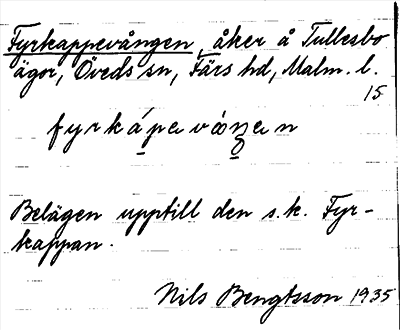 Fyrkappevången, åker å Tullesbo
ägor, Öveds sn, Färs hd, Malm. l.
15
fyrkápevóŋen
Belägen upptill den s.k. Fyr-
kappan.
Nils Bengtsson 1935